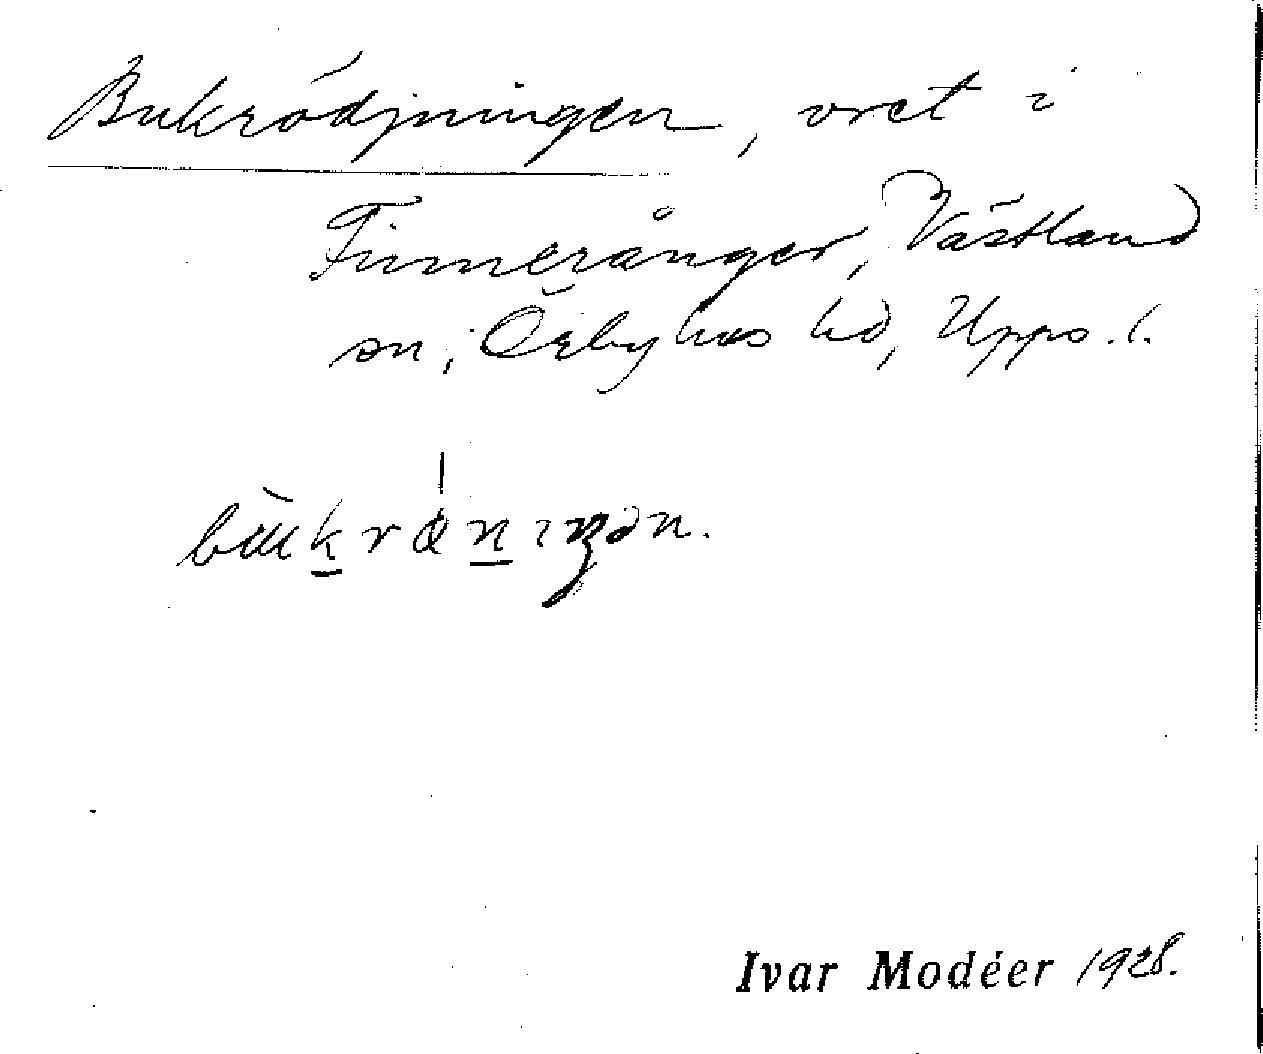 Bukrödjningen, vret i
Finneränger, Västland
sn, Örbyhus hd, Upps. l.
Ivar Modéer 1928.